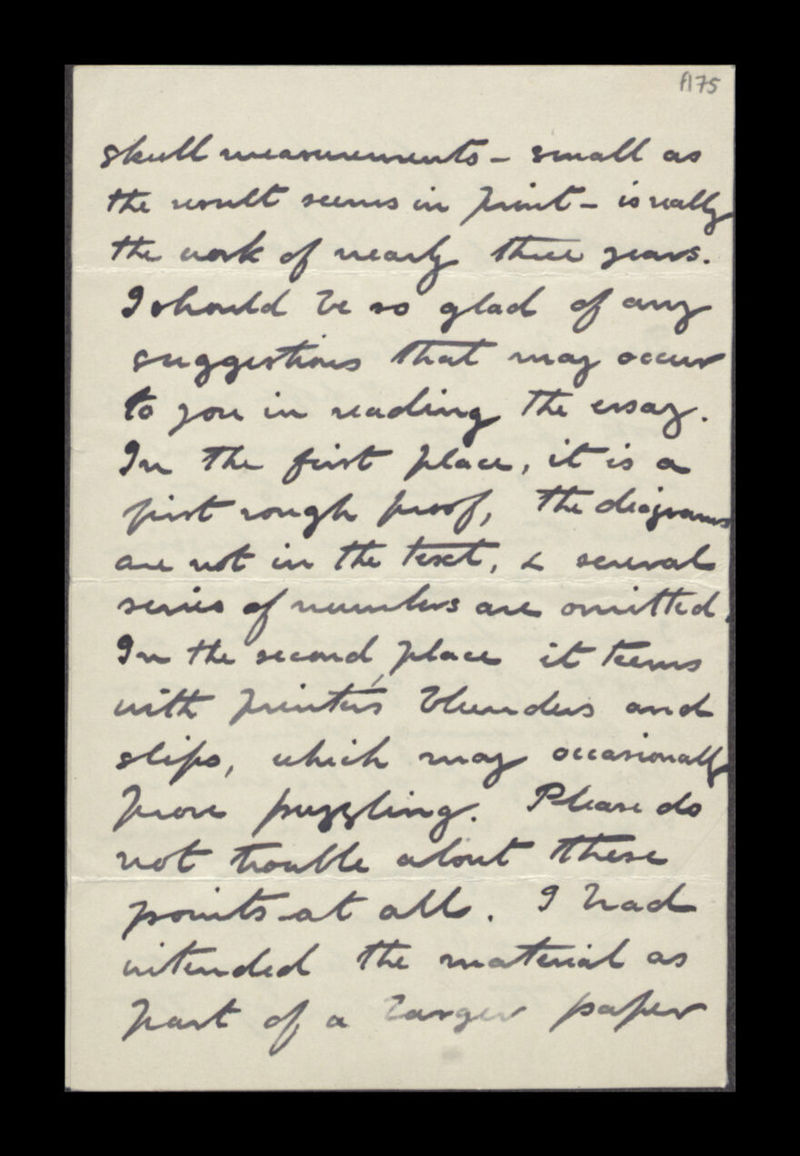 A175
skull measurements – small as
the result seems in print – is really
the work of nearly three years.
I should be so glad of any
suggestions that may occur
to you in reading the essay.
In the first place, it is a
first rough proof, the diagrams
are not in the text, & several
series of numbers are omitted.
In the second, place it teems
with printer's blunders and
slips, which may occasionally
prove puzzling. Please do
not trouble about these
points at all. I had
intended the material as
part of a larger paper